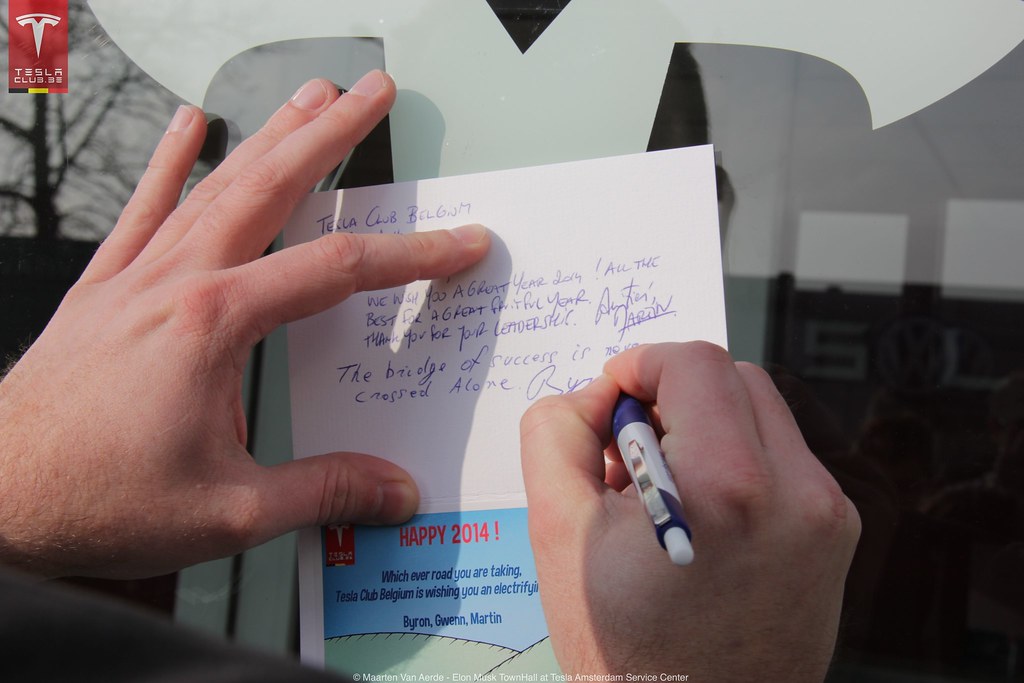 TESLA
CLUB.BE
TESLA CLUB BELGIUM
WE WISH YOU A GREAT YEAR 2014 ! ALL THE
BEST FOR A GREAT FRUITFUL YEAR.
THANK YOU FOR YOUR LEADERSHIP.
MARTIN
The bridge of success is never
crossed Alone
HAPPY 2014 !
Which ever road you are taking,
Tesla Club Belgium is wishing you an
Byron, Gwenn, Martin
© Maarten Van Aerde - Elon Musk TownHall at Tesla Amsterdam Service Center